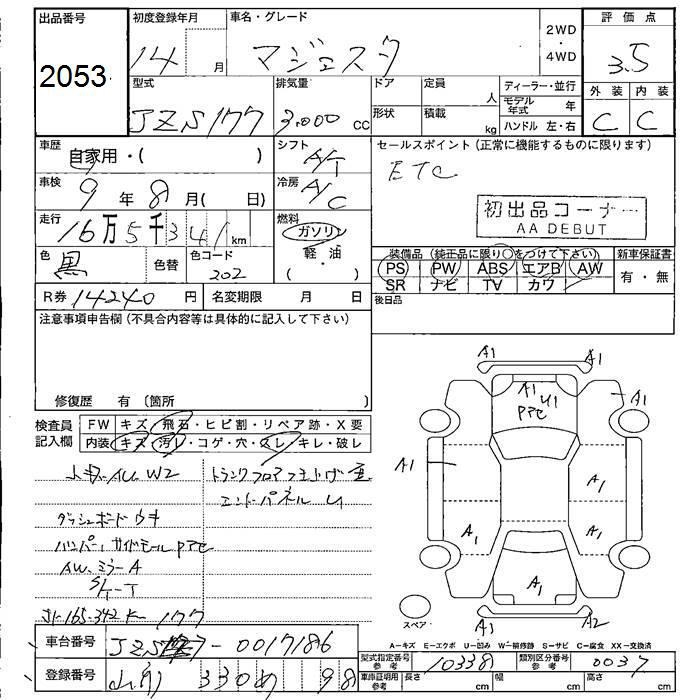 出品番号 初度登録年月 車名・グレード 2WD・4WD 評価点
2053 14 月 マジェスタ 3.5
型式 排気量 ドア 定員 人 ディーラー・並行 外装 内装
JZS177 3.000 CC 形状 積載 kg モデル年式 年 ハンドル 左・右 C C
車歴 自家用・( ) シフト A/T セールスポイント (正常に機能するものに限ります)
車検 9年 8月( 日) 冷房 A/C ETC
走行 16万5千341km 燃料 ガソリン・軽油・( ) 初出品コーナー
AA DEBUT
色 黒 色替 色コード 202 装備品 (純正品に限り○をつけて下さい) 新車保証書
PS PW ABS エアB AW 有・無
SR ナビ TV カワ
R券 14240 円 名変期限 月 日 後日品
注意事項申告欄 (不具合内容等は具体的に記入して下さい)
修復歴 有 〔箇所 〕
検査員記入欄 FW キズ・飛石・ヒビ割・リペア跡・X要
内装 キズ・汚レ・コゲ・穴・スレ・キレ・破レ
W2 トランクフロア
エンドパネル U1
ダッシュボード ウキ
バンパー、サイドモール Pアセ
AW、ミラーA
S/T-T
A1 A1
A1 U1 Pアセ A1
A1 A1
A1 A1
A1
スペア A1 A2
A=キズ E=エクボ U=凹み W=補修跡 S=サビ C=腐食 XX=交換済
車台番号 JZS177-0017186
型式指定番号 参考 10338 類別区分番号 参考 0037
登録番号 330 98
車庫証明用 参考 長さ cm 幅 cm 高さ cm